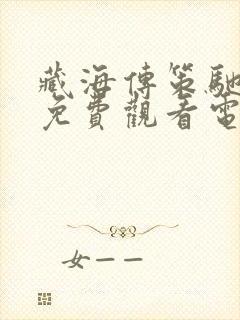 藏海傳策馳
免費觀看電
女——